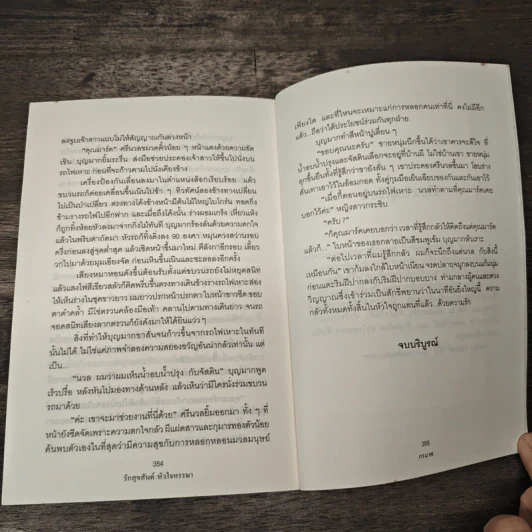 ลงจูบเจ้าสาวแบบไม่ให้สัญญาณกันล่วงหน้า
"คุณมาร์ค" ศรีนวลขมวดคิ้วน้อย ๆ หน้าแดงด้วยความขัด
เขิน บุญมากยิ้มระรื่น ส่งมือช่วยประคองเจ้าสาวให้ขึ้นไปนั่งบน
รถไฟเหาะ ก่อนที่จะก้าวตามไปนั่งเคียงข้าง
เครื่องป้องกันเลื่อนลงมาในตำแหน่งล็อกเรียบร้อย แล้ว
ขบวนรถก็ค่อยเคลื่อนขึ้นเนินไปช้า ๆ ทิวทัศน์สองข้างทางเปลี่ยน
ไม่เป็นป่าเขียว ตรงทางโค้งข้างหน้ามีต้นไม้ใหญ่ไม่โกร๋น ทอดกิ่ง
ข้ามรางรถไฟไปอีกฟาก และเมื่อถึงโค้งนั้น ร่างผอมเกร็ง เหี่ยวแห้ง
ก็ถูกทิ้งห้อยหัวลงมาจากกิ่งไม้ทันที บุญมากร้องลั่นด้วยความตกใจ
แล้วในพริบตาถัดมา หัวรถก็ทิ้งดิ่งลง 90 องศา หมุนควงสว่านรอบ
ครึ่งก่อนลงสู่จุดต่ำสุด แล้วเชิดหน้าขึ้นมาใหม่ ตีลังกาอีกรอบ เลี้ยว
วกไปมาด้วยมุมเอียงจัด ก่อนเหินขึ้นเนินและชะลอลงอีกครั้ง
เสียงหมาหอนดังขึ้นต้อนรับตั้งแต่ขบวนรถยังไม่หยุดสนิท
แล้วแสงไฟสีเขียวสลัวก็ติดพรึบขึ้นตรงทางเดินข้างรางรถไฟเหาะส่อง
ให้เห็นร่างในชุดขาวยาว ผมยาวปรกหน้าปรกตา ใบหน้าขาวซีด ขอบ
ตาดำคล้ำ มีโซ่ตรวนคล้องมือเท้า คลานไปตามทางเดินยาว จนรถ
จอดสนิทเสียงลากตรวนก็ยังดังมาให้ได้ยินแว่ว ๆ
สิ่งที่ทำให้บุญมากขาสั่นจนก้าวขึ้นจากรถไฟเหาะในทันที
นั้นไม่ได้ ไม่ใช่แค่ภาพจำลองความสยองขวัญอันน่ากลัวเท่านั้น แต่
เป็น...
"นวล ผมว่าผมเห็นน้ำอบน้ำปรุง กับจัสติน" บุญมากพูด
เร็วปรื๋อ หลังหันไปมองทางด้านหลัง แล้วเห็นว่ามีใครนั่งร่วมขบวน
รถมาด้วย
"ค่ะ เขาจะมาช่วยงานที่นี่ด้วย" ศรีนวลยิ้มออกมา ทั้ง ๆ ที่
หน้ายังซีดจัดเพราะความตกใจกลัว ผีแฝดสาวและกุมารทองตัวน้อย
ค้นพบตัวเองในที่สุดว่ามีความสุขกับการหลอกหลอนมวลมนุษย์
354
รักสุขสันต์ หัวใจหรรษา
เพียงใด และที่ไหนจะเหมาะแก่การหลอกคนเท่าที่นี่ คงไม่มีอีก
แล้ว..ถือว่าได้ประโยชน์ร่วมกันทุกฝ่าย
บุญมากทำสีหน้าปูเลี่ยน ๆ
"ขอบคุณนะครับ" ชายหนุ่มนึกขึ้นได้ว่าควรจะดีใจ ที่
น้ำอบน้ำปรุงและจัสตินเลือกจะอยู่ที่บ้านผี ไม่ใช่บ้านเขา ชายหนุ่ม
ลุกขึ้นยืนทั้งที่รู้สึกว่าขายังสั่น ๆ เขาประคองศรีนวลขึ้นมา ก่อนรวบ
ต้นเทาเอาไว้ในอ้อมกอด
"เมื่อกี้ตอนอยู่บนรถไฟเหาะ นวลทำตามที่คุณมาร์คเคย
บอกไว้ค่ะ" หญิงสาวกระซิบ
"ครับ ?"
"ก็คุณมาร์คเคยบอกว่า เวลาที่รู้สึกกลัวให้คิดถึงแต่คุณมาร์ค
แล้วก็..." ใบหน้าของเธอกลายเป็นสีชมพูเข้ม บุญมากหัวเราะ
"ต่อไปเวลาที่ผมรู้สึกกลัว ผมก็จะนึกถึงแต่นวล กับสิ่งนี้
เหมือนกัน" เขาก้มลงใกล้ใบหน้าเนียน จรดปลายจมูกลงบนแก้มนุ่ม
ก่อนแตะริมฝีปากลงกับริมฝีปากบอบบาง ท่ามกลางผู้คนและดวง
วิญญาณซึ่งเข้าร่วมเป็นสักขีพยานว่าในนาทีอันยิ่งใหญ่นี้ ความ
กลัวทั้งหมดทั้งสิ้นในหัวใจถูกแทนที่แล้ว ด้วยความรัก
จบบริบูรณ์
355
กรแพ